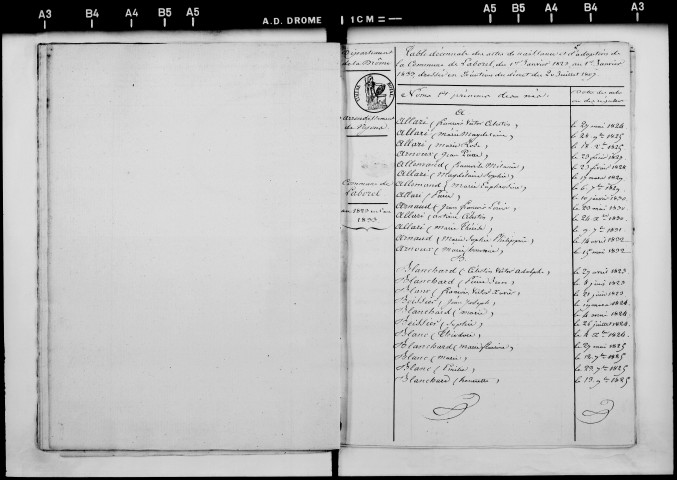 A3 B4 A4 B5 A5 A.D. DROME 1 CM A5 B5 A4 B4 A3
Département
de la Drôme
arrondissement
de
Commune de
Laborel
an 1823 en l'an
1833
Table décennale des actes de naissance et d'adoption de
la Commune de Laborel, du 1er Janvier 1823, au 1er Janvier
1833, dressée en exécution du décret du 20 Juillet 1807
Noms et prénoms des nés
Dates des actes
ou des registres
A
Allari (françois Victor Célestin) le 29 mai 1824
Allari (marie Magdelaine) le 28 9bre 1825
Allari (marie Rose) le 18 Xbre 1825
Arnoux (Jean Pierre) le 23 février 1827
Allemand (françois) le 23 février 1828
Allari (Magdelaine Sophie) le 17 mars 1829
Allemand (marie Euphrosine) le 6 7bre 1829
Allari (Pierre) le 10 janvier 1830
Arnaud (Jean françois Louis) le 20 mai 1830
Allari (antoine Célestin) le 26 Xbre 1830
Allari (marie) le 9 7bre 1831
Arnaud (Marie Sophie Philippine) le 14 avril 1832
Arnoux (Marie) le 15 mai 1832
B
Blanchard (Célestin Victor Adolphe) le 29 avril 1823
Blanchard (Pierre) le 8 juin 1823
Blanc (françois Victor Xavier) le 21 juin 1823
Beissier (Jean Joseph) le 19 mars 1824
Blanchard (marie) le 4 mai 1824
Beissier (Sophie) le 26 juillet 1824
Blanc (Théodore) le 4 Xbre 1824
Blanchard (marie) le 29 mai 1825
Blanc (marie) le 12 7bre 1825
Blanc (Emilie) le 23 7bre 1825
Blanchard (henriette) le 19 9bre 1825